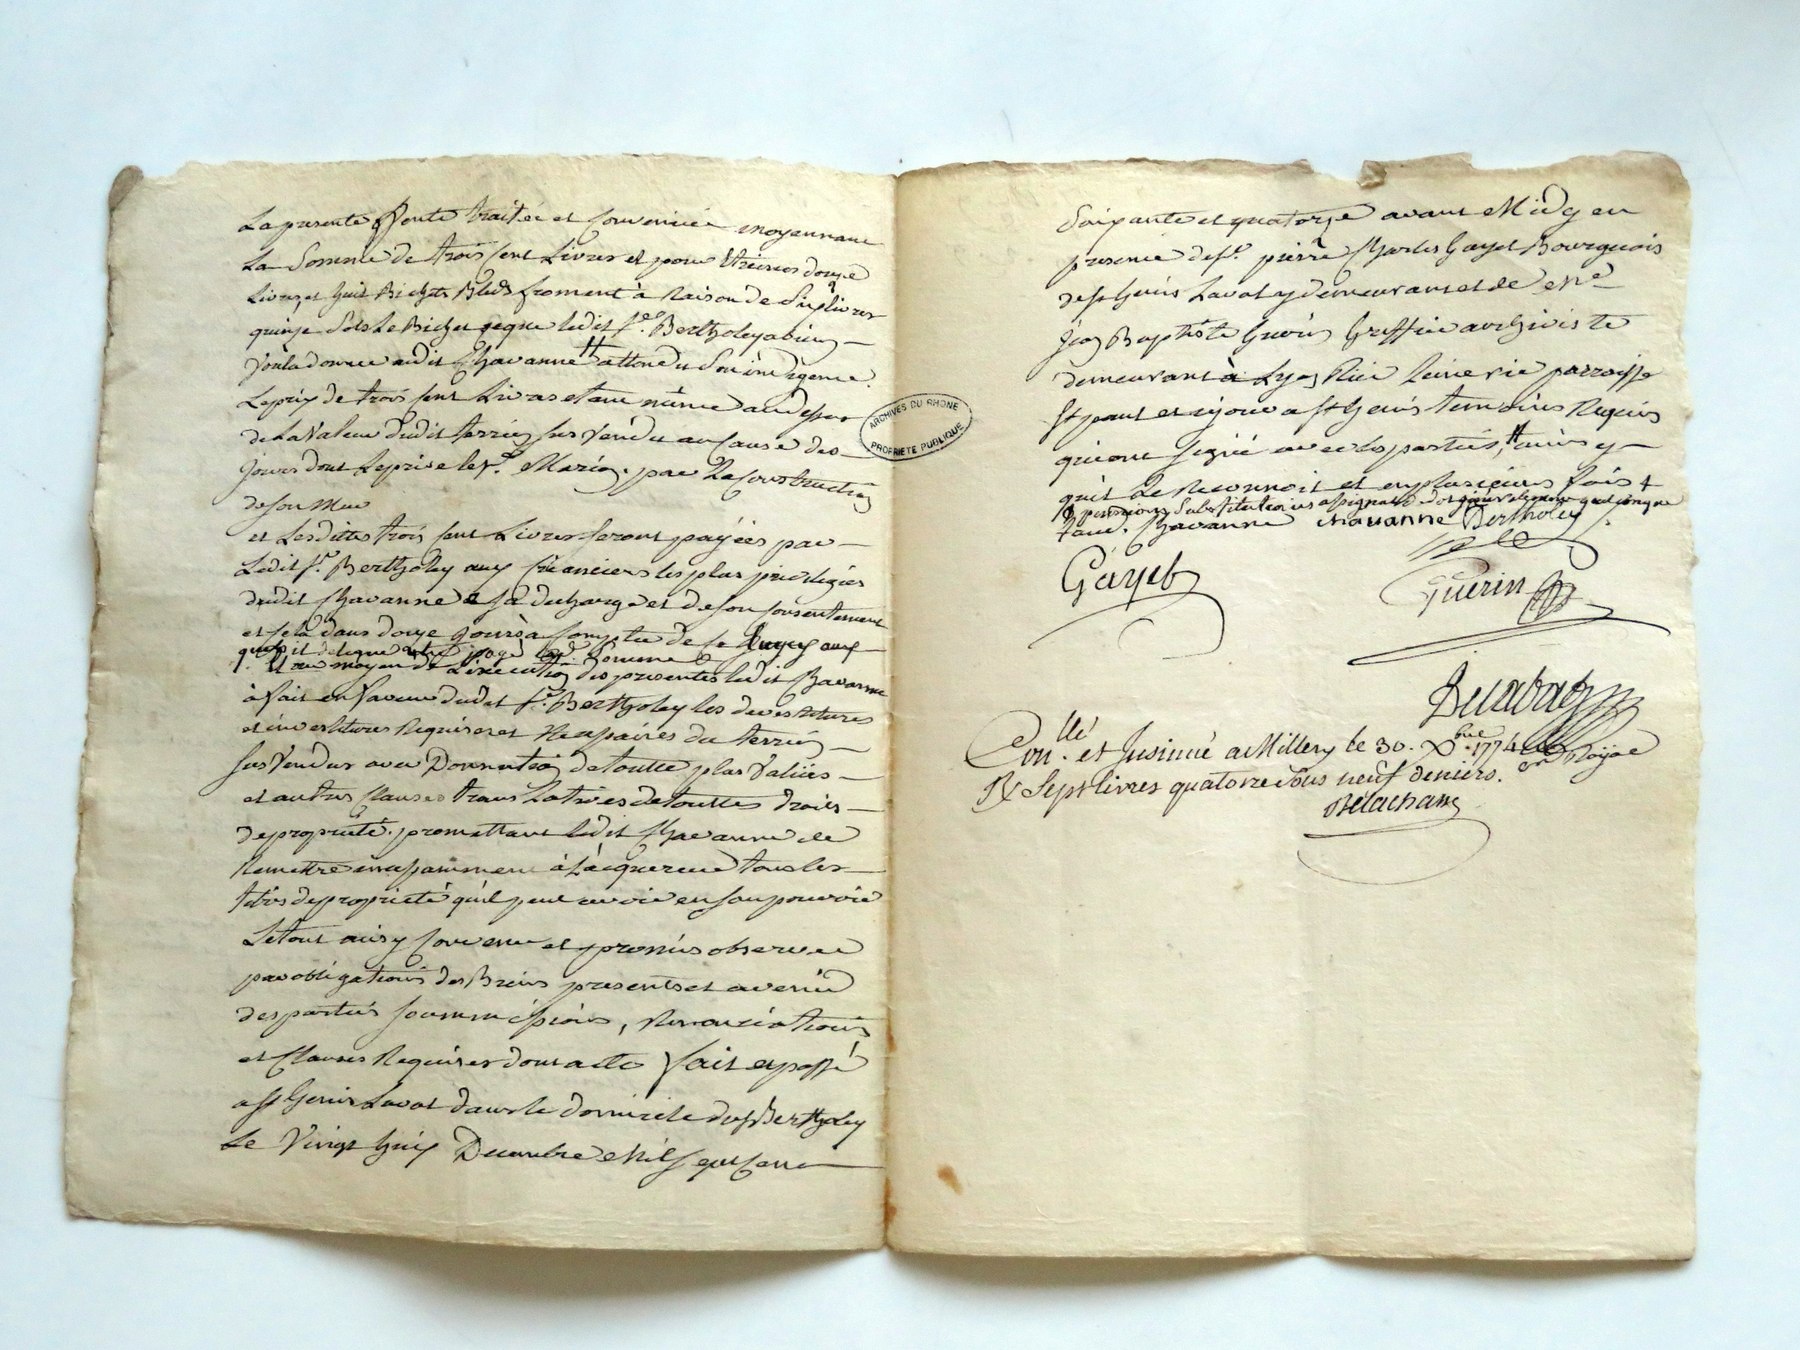 La presente Vente traitée et Convenüe moyennant
La Somme de trois Cent Livres et pour Etreines douze
Livres, et huit Bichets Bled froment à Raison de Six livres
quinze Sols Le Bichet que ledit Sr. Bertholey a bien
Voula donner audit Chavanne attendu Son indigence.
Le prix de trois Cent Livres etant même au dessus
de La Valeur dudit terrein Sus Vendu au Cause des
jours dont Le prive le Sr. Marion par La Construction
de Son Mur
et Lesdittes trois Cent Livres Seront payées par
Ledit Sr. Bertholey aux Créanciers les plus privilegiés
dudit Chavanne a Sa decharge et de Son Consentement
et Cela dans douze jours a Compter de Ce jour aux
Et au moyen de L'execution des presentes ledit Chavanne
à fait en faveur dudit Sr. Bertholey les devestitures
et investitures Requises et Necessaires du terrein
Sus Vendu avec Donnation de toutte plus Values
et autres Clauses translatives de touttes droits
de propriété. promettant ledit Chavanne de
Remettre incessamment à L'acquereur tous les
titres de propriété qu'il peut avoir en Son pouvoir
Le tout ainsy Convenu et promis observer
par obligations des Biens presents et avenir
des parties Soummissions, Renonciations
et Clauses Requises dont acte fait et passé
a St Genis Laval dans le domicile du Sr Bertholey
Le Vingt huit Decembre Mil Sept Cent
Soixante et quatorze avant Midy en
presence de Sr. pierre Charles Gayet Bourgeois
de St Genis Laval y demeurant et de Me
Jean Baptiste Guerin Greffier archiviste
demeurant à Lyon Rüe Juiverie parroisse
St paul et sejour a St Genis temoins Requis
qui ont Signé avec les parties, ainsy
qu'il Le Reconnoit et en plusieurs fois
Chavanne chavanne Bertholey
Gayet
Guerin
Delachasse
Conllé. et Insinué a Millery le 30. Xbre 1774
R Sept livres quatorze sous neuf deniers.
Delachasse
ARCHIVES DU RHONE
PROPRIETE PUBLIQUE